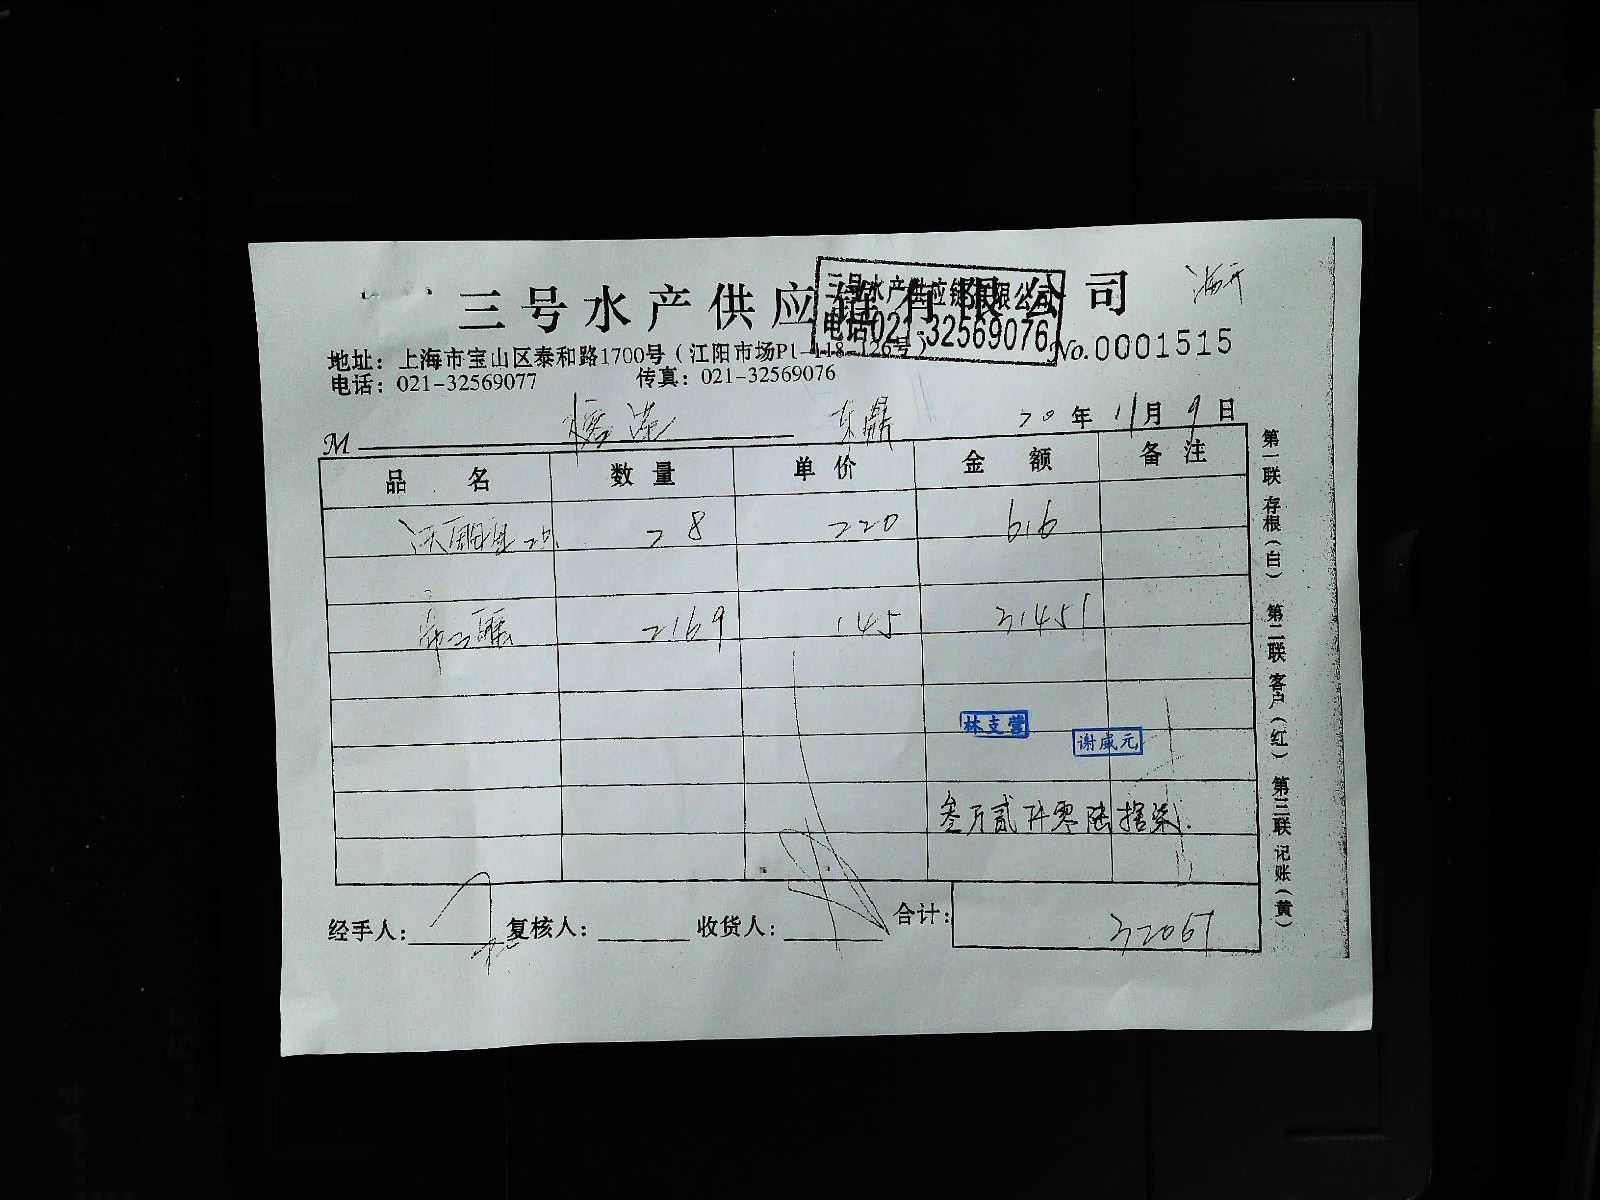 三号水产供应链有限公司
三号水产供应链有限公司
电话021-32569076
No.0001515
地址：上海市宝山区泰和路1700号（江阳市场P1-118-126号）
电话：021-32569077 传真：021-32569076
M 东鼎 20年11月9日
品名 数量 单价 金额 备注
28 220 616
2169 145 31451
林支营
谢咸元
叁万贰仟零陆拾柒.
经手人： 复核人： 收货人： 合计： 32067
第一联 存根（白） 第二联 客户（红） 第三联 记账（黄）